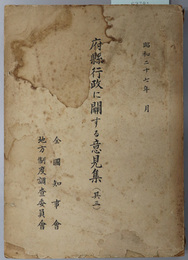 昭和二十七年　月
府縣行政に關する意見集（其二）
全國知事會
地方制度調査委員會